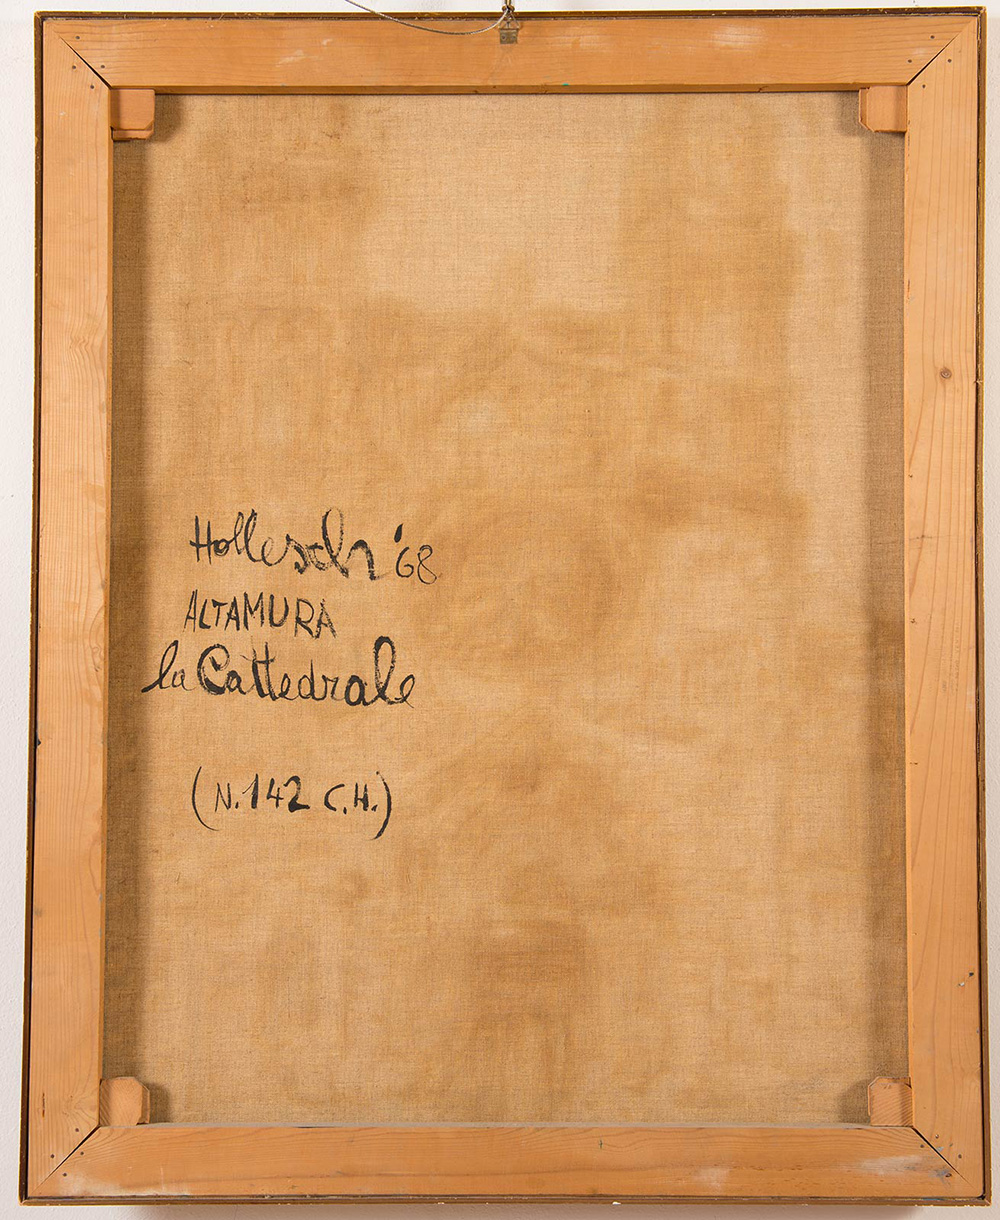 Hollesch '68
ALTAMURA
la Cattedrale
(N. 142 C.H.)